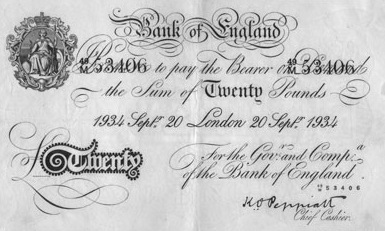 Bank of England
48/M 53406 to pay the Bearer on 48/M 53406
the Sum of Twenty Pounds
1934 Septr. 20 London 20 Septr. 1934
For the Govr. and Compa.
£ Twenty of the Bank of England
53406
K. O. Peppiatt
Chief Cashier.